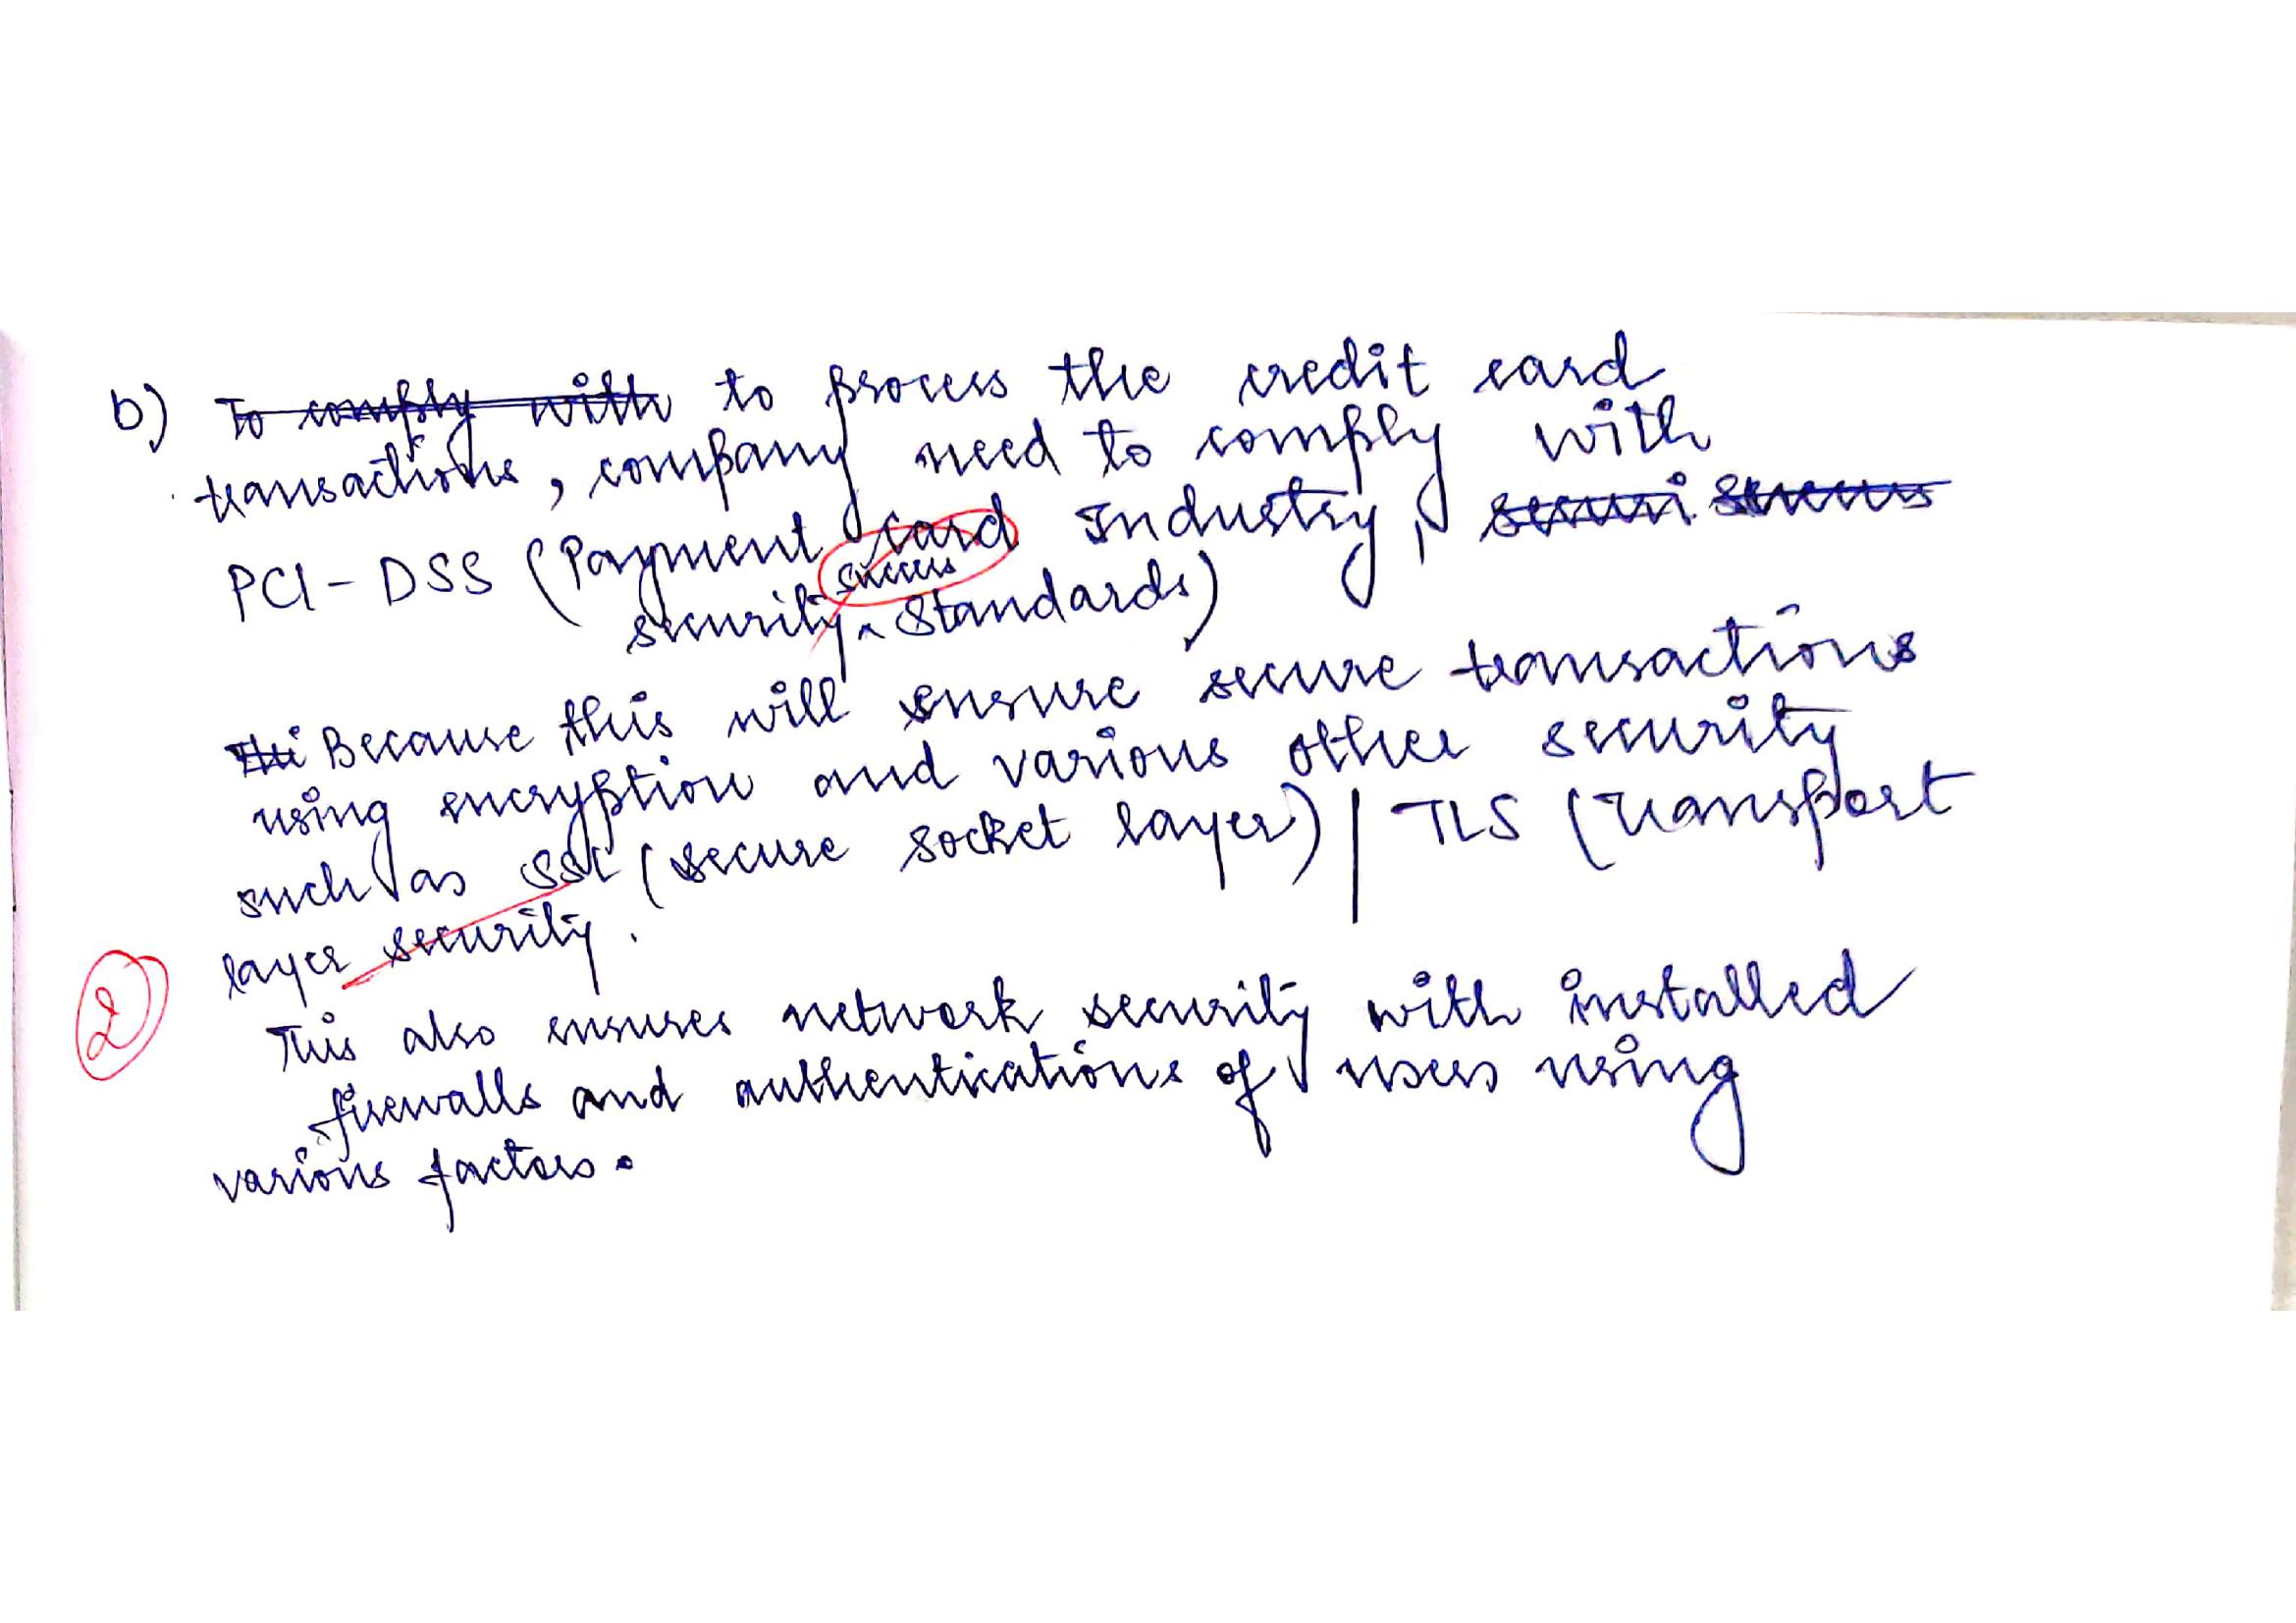 b) To comply with to process the credit card
transactions, company need to comply with
PCI-DSS (Payment card Industry,
security success Standards)
Because this will ensure secure transactions
using encryption and various other security
such as SSL (secure socket layer) | TLS (Transport
layer security.
2
This also ensures network security with installed
firewalls and authentications of users using
various factors.